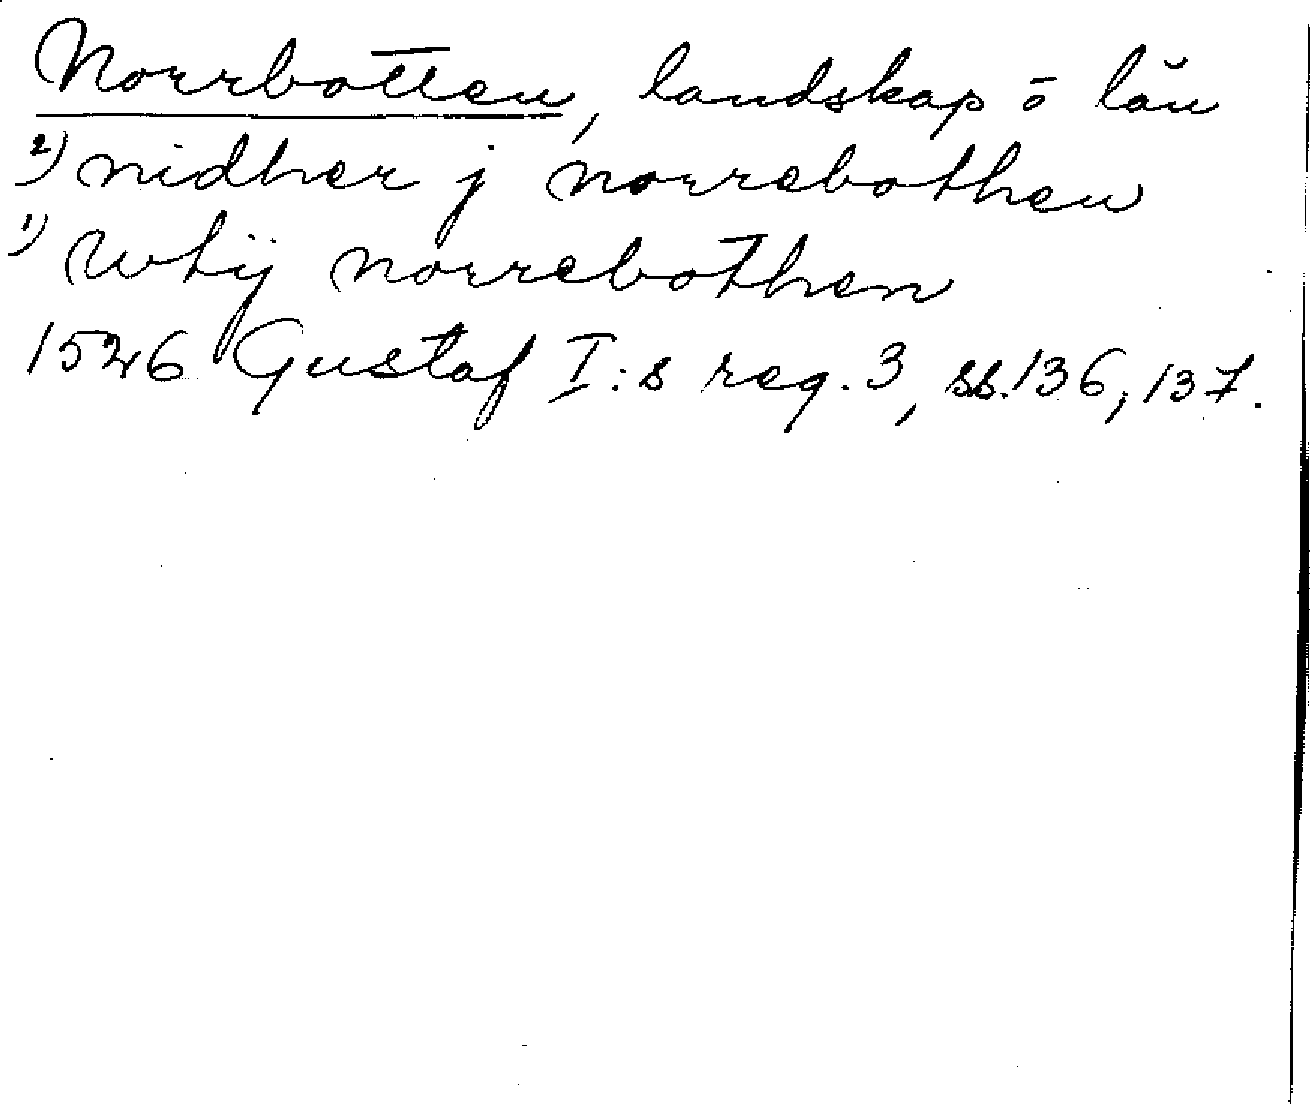 Norrbotten, landskap o län
2) nidher j norrebothen
1) wtij norrebothen
1526 Gustaf I:s reg. 3, ss. 136, 137.